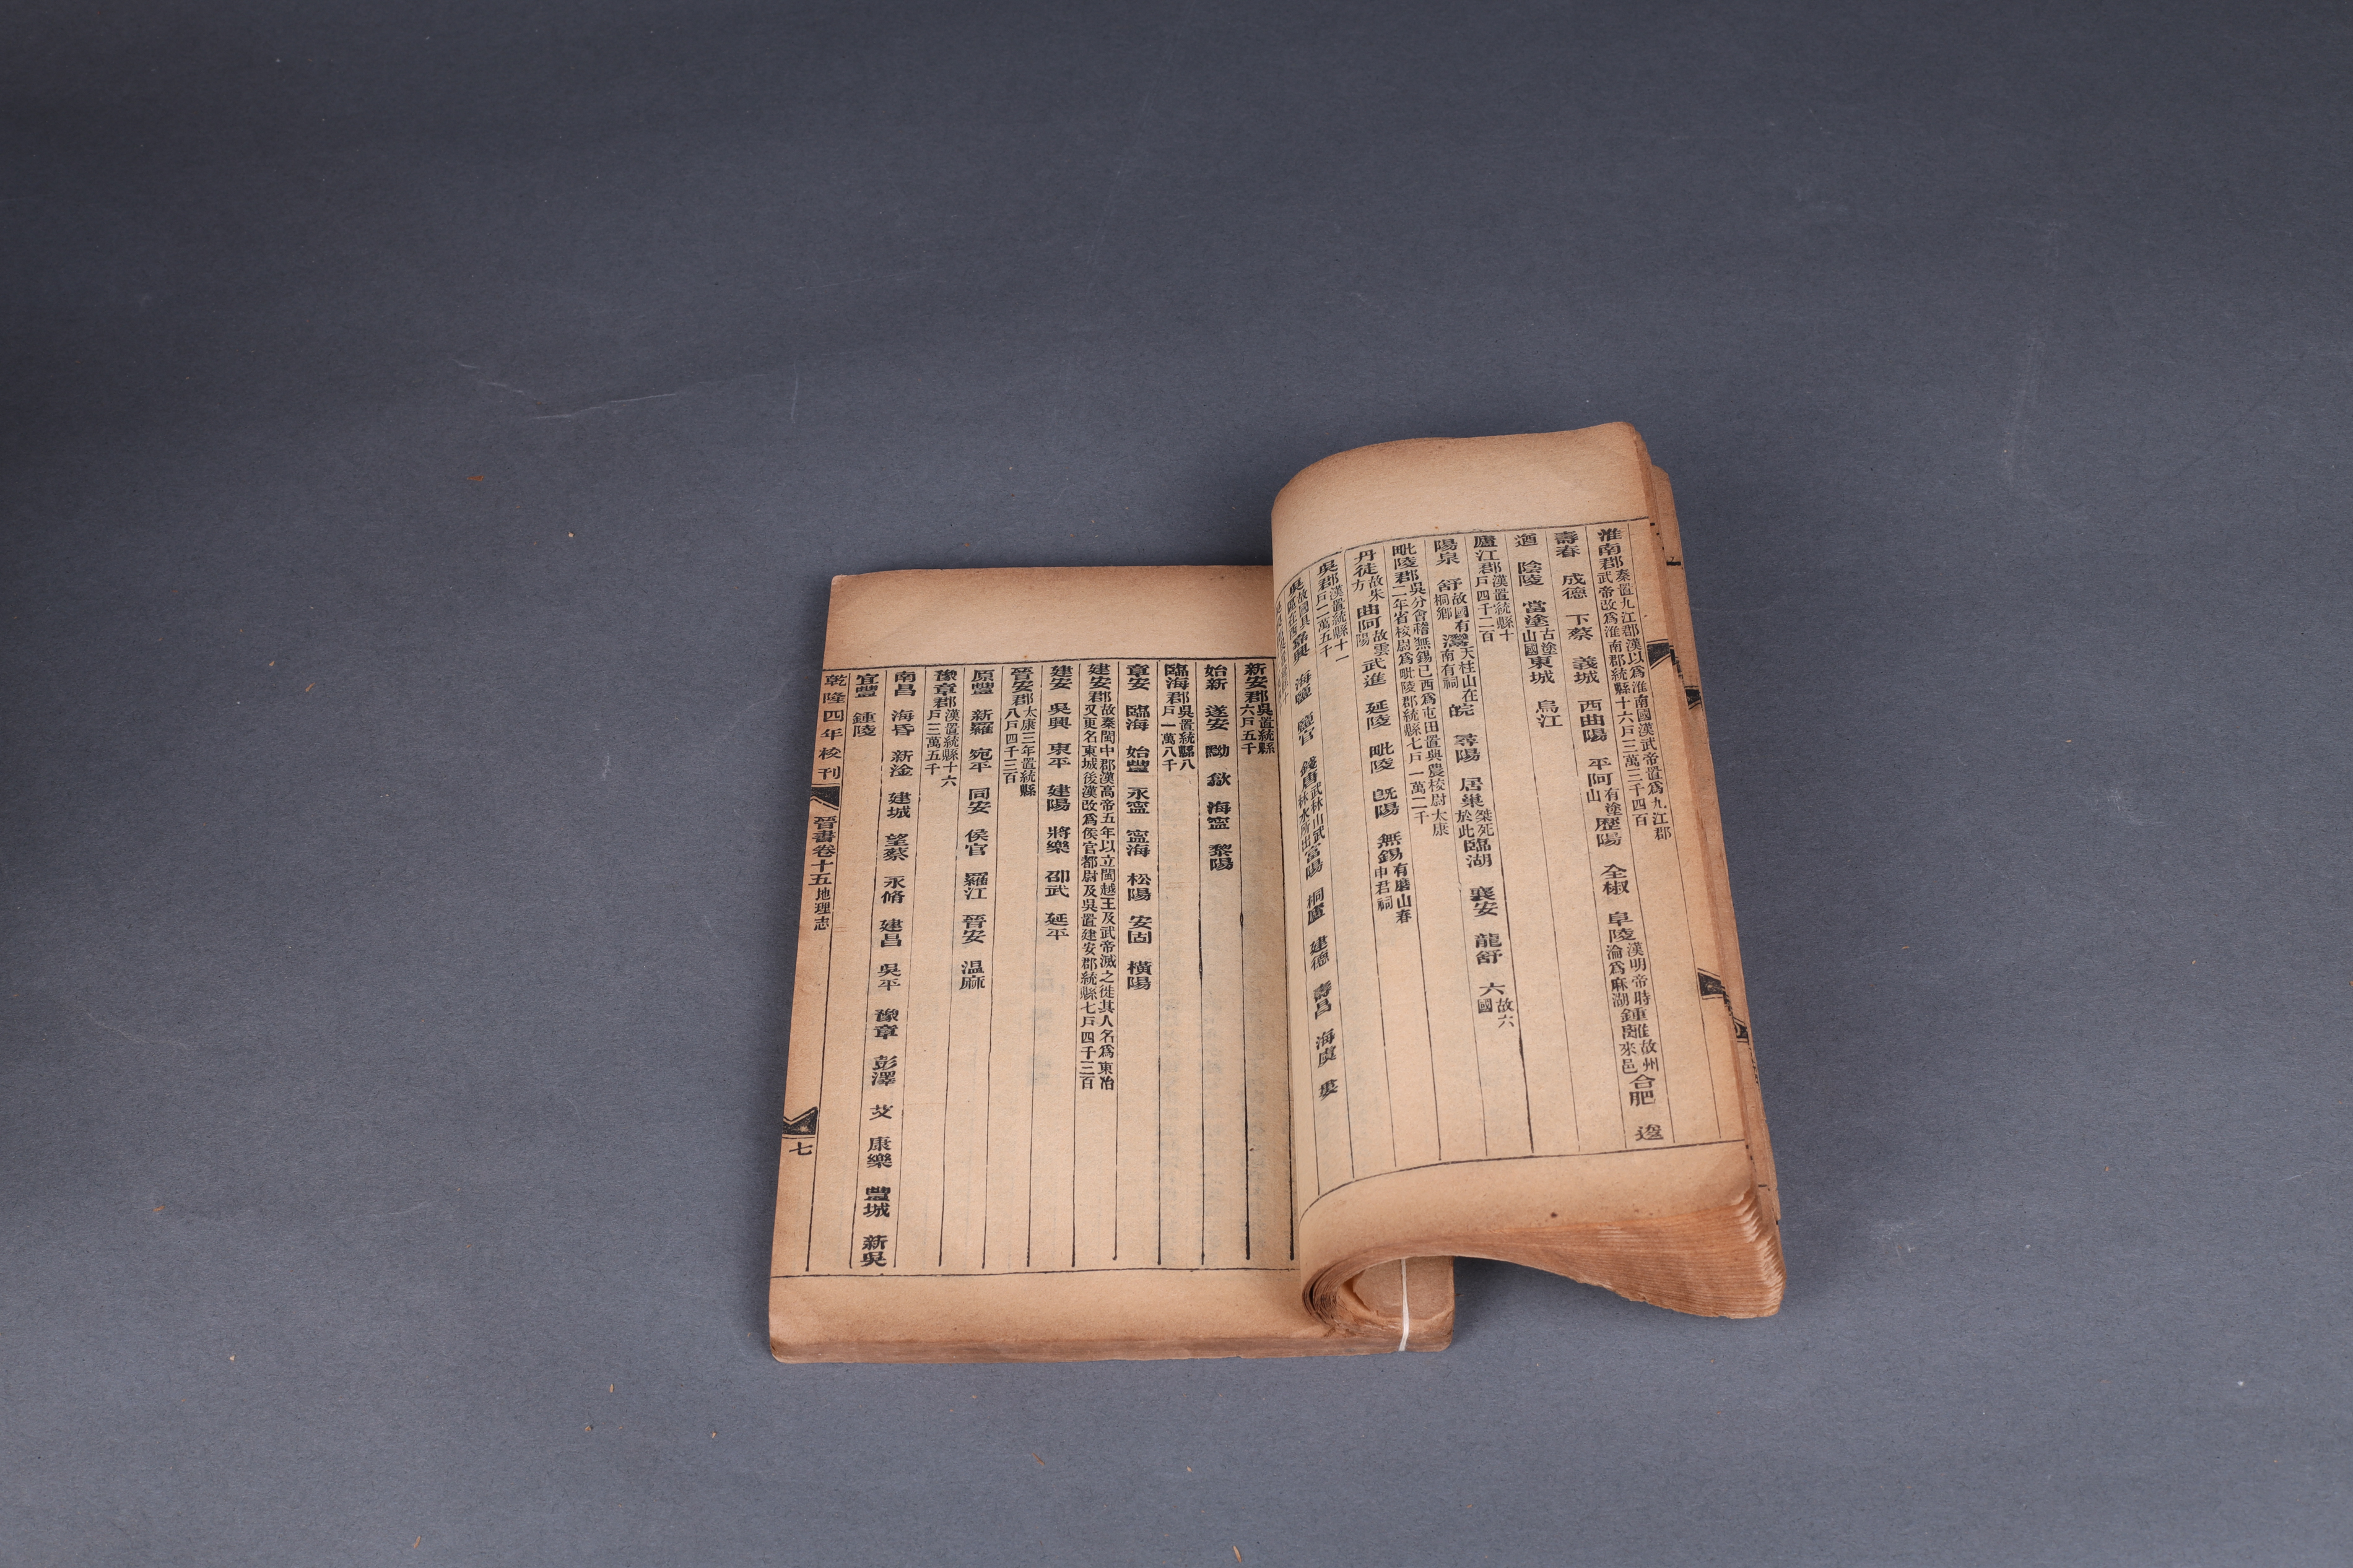 淮南郡秦置九江郡漢以爲淮南國漢武帝置爲九江郡武帝改爲淮南郡統縣十六戸三萬三千四百
壽春 成德 下蔡 義城 西曲陽 平阿有塗山 歷陽 全椒 阜陵漢明帝時淪爲麻湖 鍾離故州來邑 合肥 逡
遒 陰陵 當塗古塗山國 東城 烏江
廬江郡漢置統縣十戸四千二百
陽泉 舒故國有桐鄉 灊天柱山在南有祠 皖 尋陽 居巢桀死於此 臨湖 襄安 龍舒 六故六國
毗陵郡吳分會稽無錫已西爲屯田置典農校尉太康二年省校尉爲毗陵郡統縣七戸一萬二千
丹徒故朱方 曲阿故雲陽 武進 延陵 毗陵 旣陽 無錫有磨山春申君祠
吳郡漢置統縣十一戸二萬五千
吳故國具區在西 嘉興 海鹽 鹽官 錢唐武林山武林水所出 富陽 桐廬 建德 壽昌 海虞 婁
新安郡吳置統縣六戸五千
始新 遂安 黝 歙 海寧 黎陽
臨海郡吳置統縣八戸一萬八千
章安 臨海 始豐 永寧 寧海 松陽 安固 橫陽
建安郡故秦閩中郡漢高帝五年以立閩越王及武帝滅之徙其人名爲東冶又更名東城後漢改爲侯官都尉及吳置建安郡統縣七戸四千三百
建安 吳興 東平 建陽 將樂 邵武 延平
晉安郡太康三年置統縣八戸四千三百
原豐 新羅 宛平 同安 侯官 羅江 晉安 温麻
豫章郡漢置統縣十六戸三萬五千
南昌 海昏 新淦 建城 望蔡 永脩 建昌 吳平 豫章 彭澤 艾 康樂 豐城 新吳
宜豐 鍾陵
乾隆四年校刊 晉書卷十五地理志 七